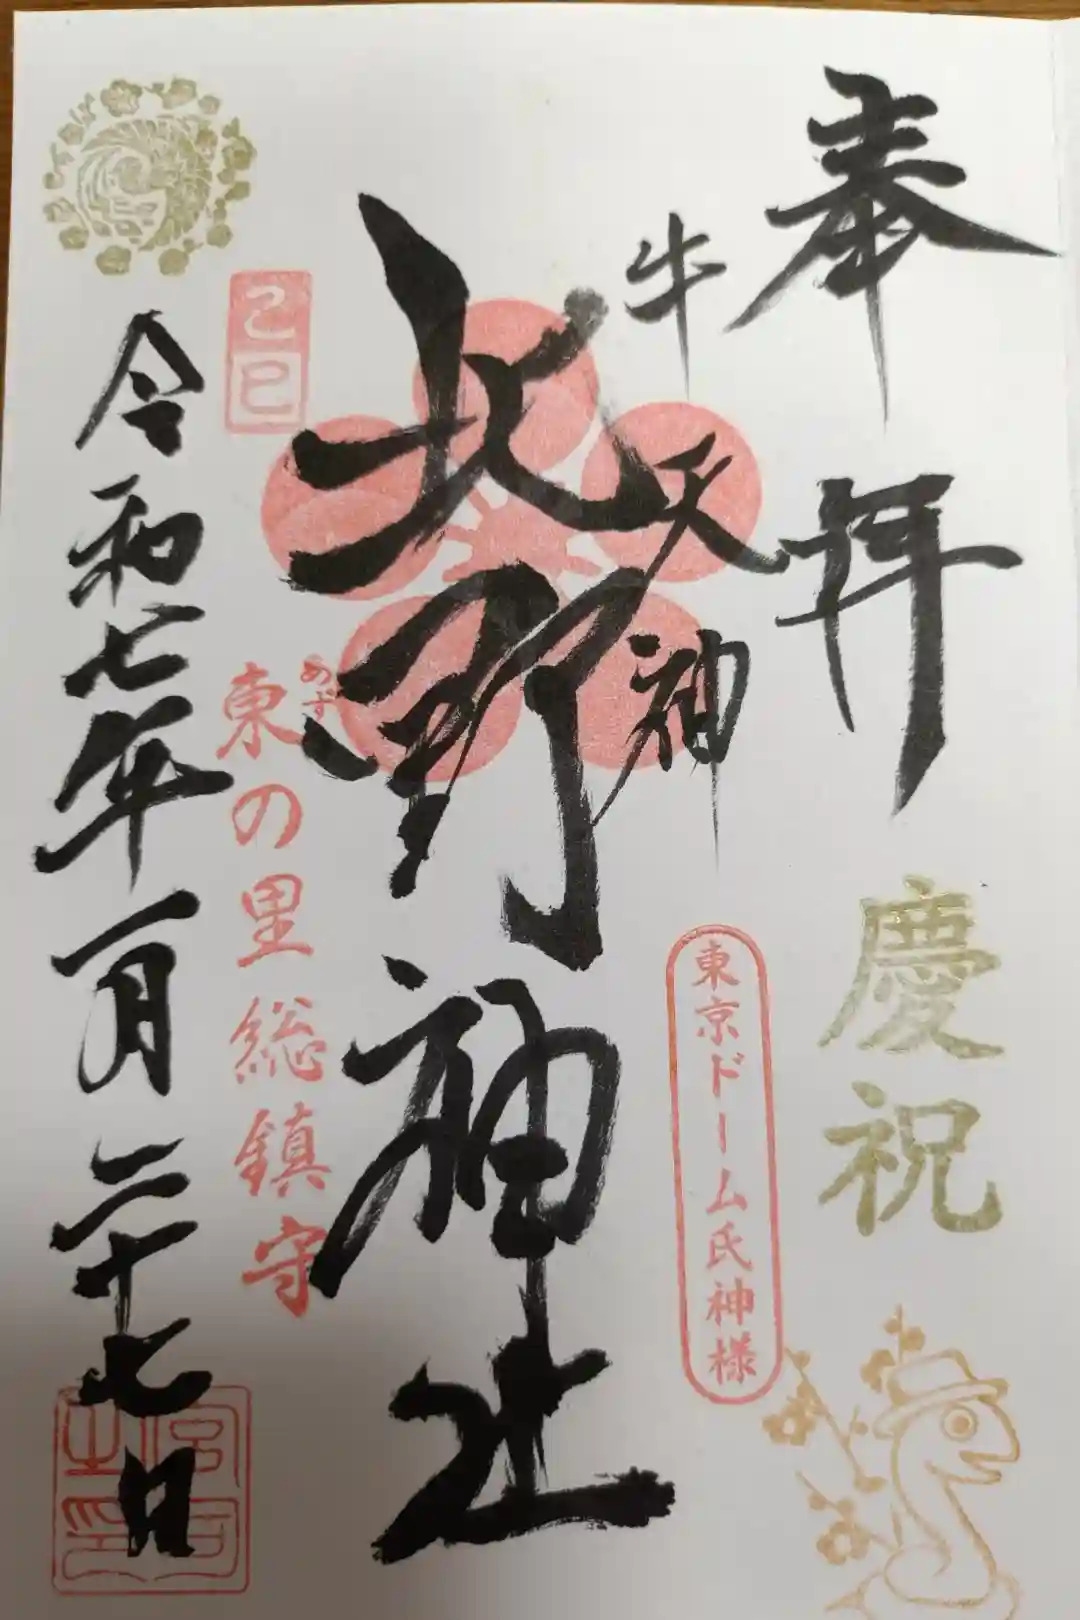 奉拝
慶祝
牛天神
東京ドーム氏神様
北野神社
己巳
あずま
東の里総鎮守
令和七年一月二十七日
宮司之印